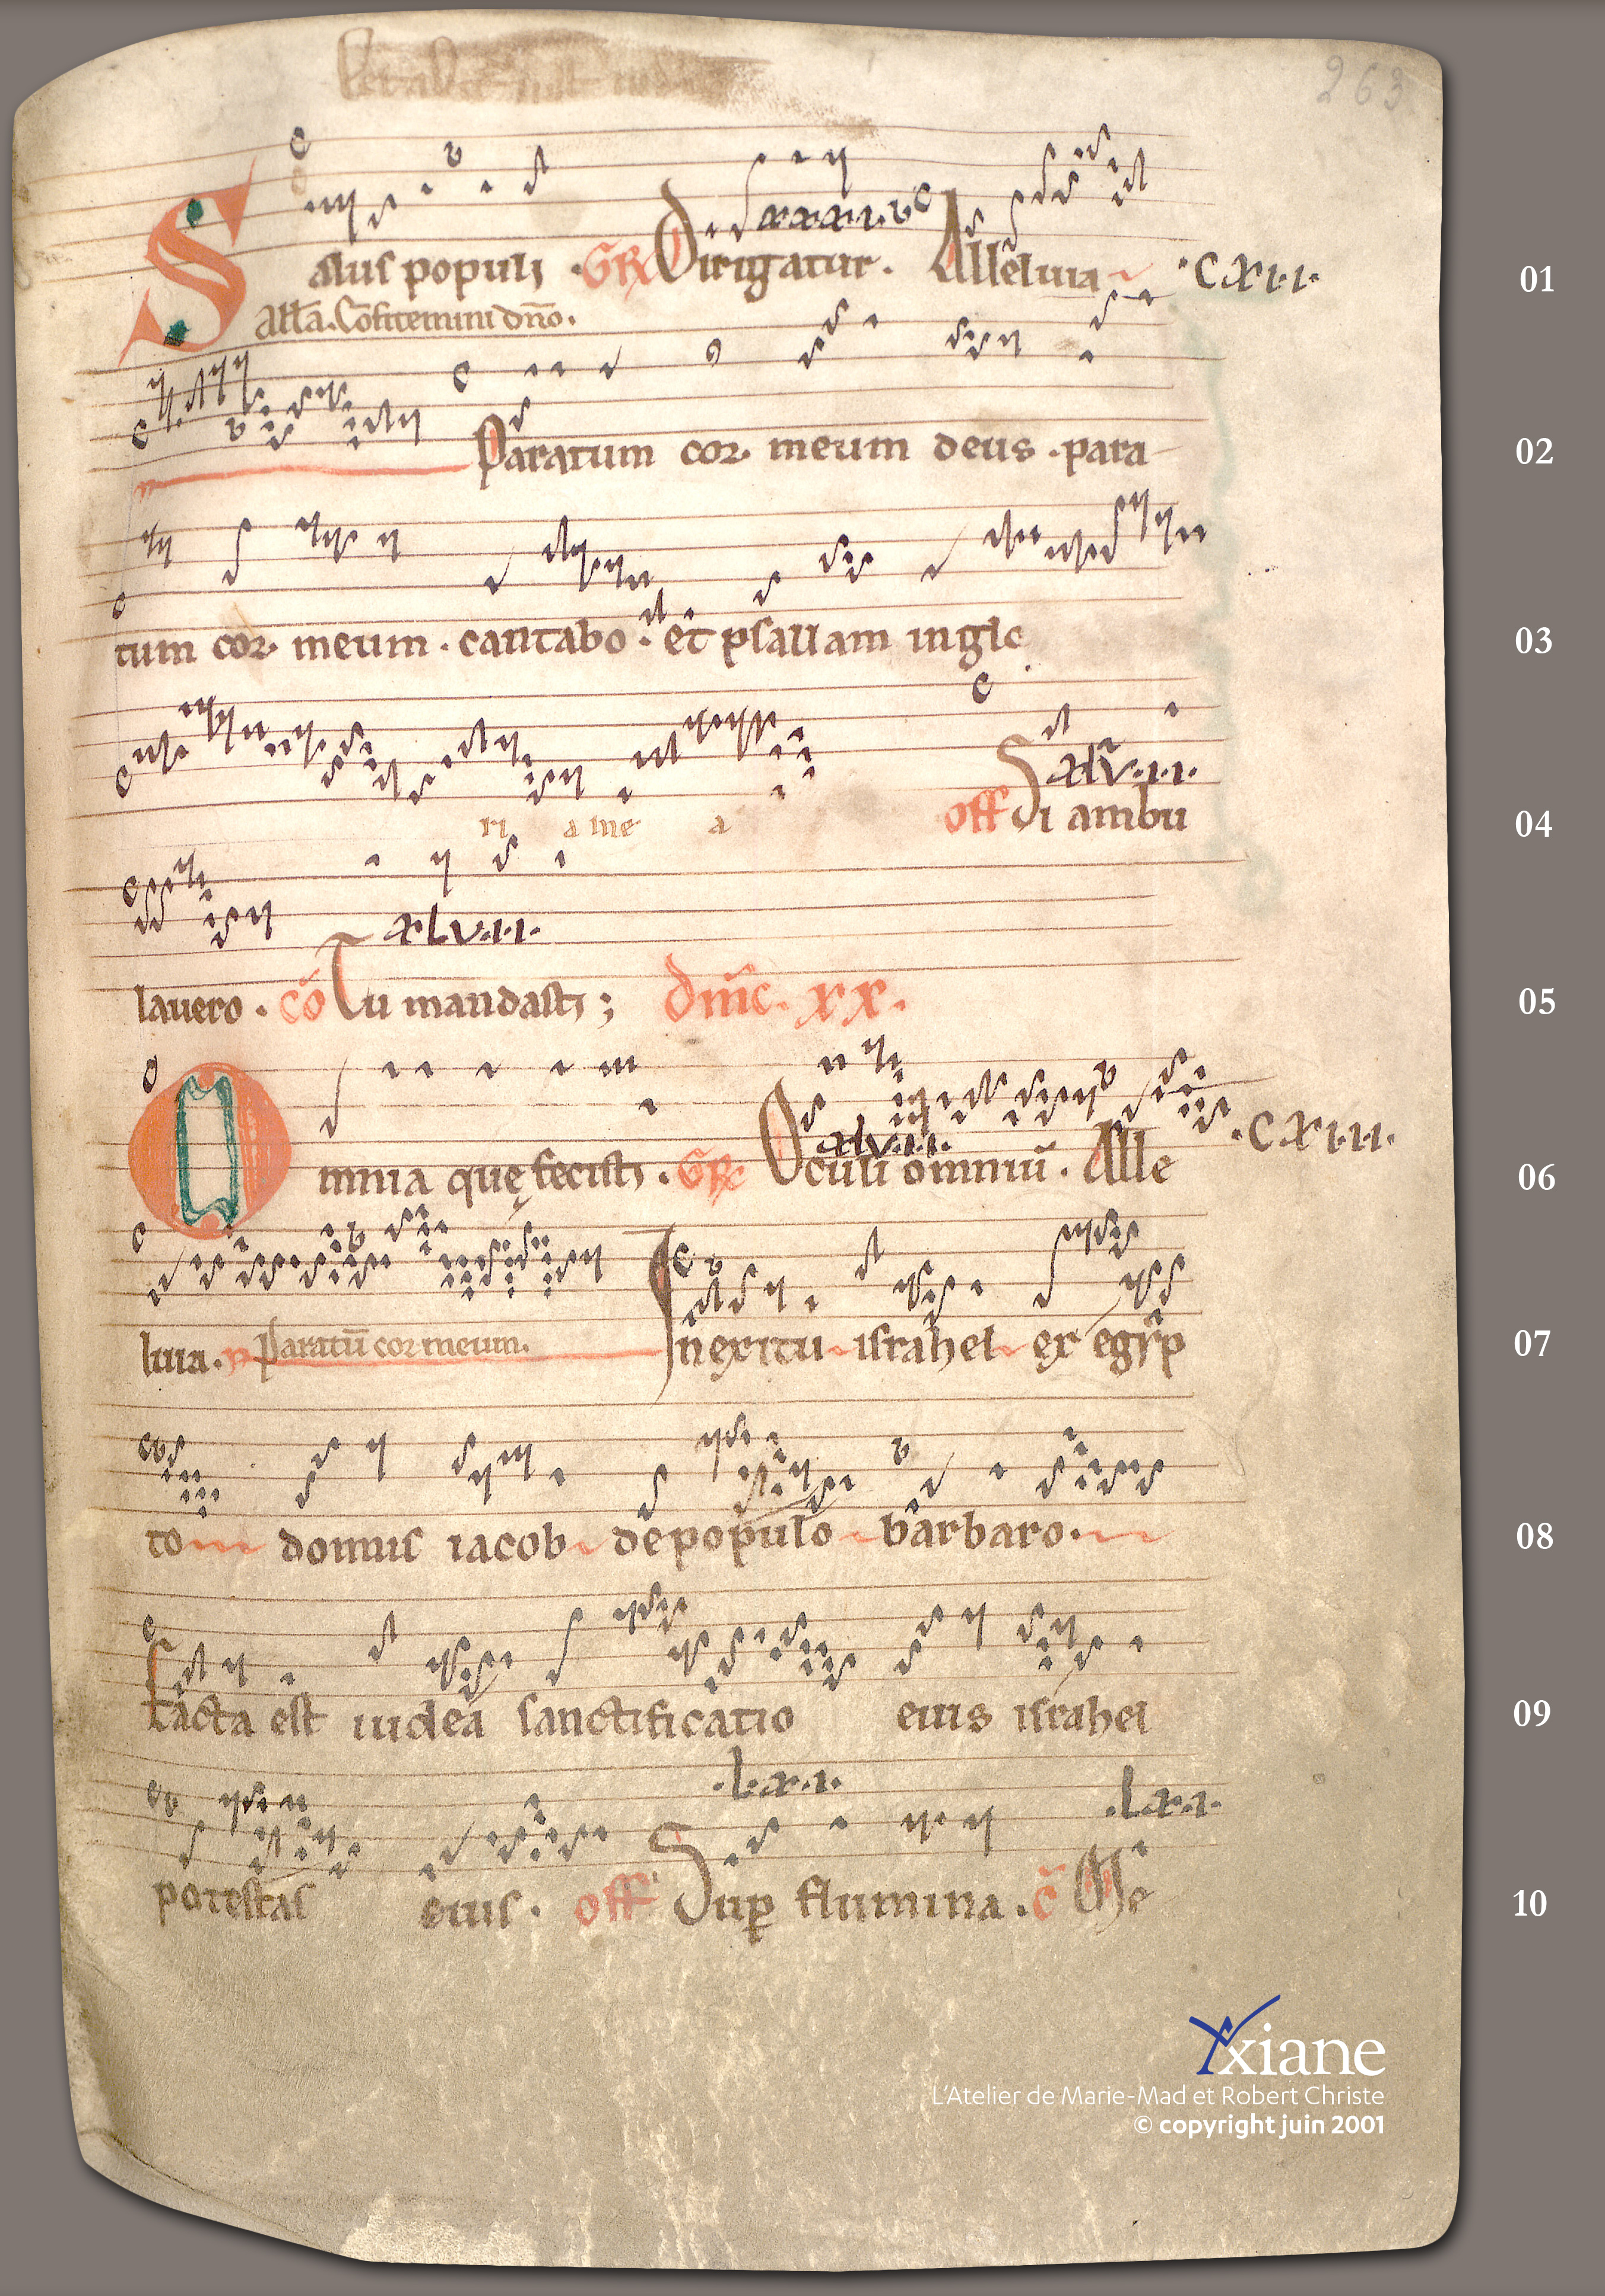 263
Salus populi . GR Dirigatur . Alleluia .CXII.
xxxi.
01
All̄a . Cōfitemini dn̄o .
Paratum cor meum deus . para
02
tum cor meum . cantabo . et psallam in glo
03
ri a me a off Si ambu
xlvii.
04
lauero . cō Tu mandasti ; Dn̄ic . xx .
xlvii.
05
Omnia quę fecisti . GR Oculi omniū . Alle .CXIII.
xlvii.
06
luia . Paratū cor meum . In exitu israhel ex egyp
07
to domus iacob de populo barbaro .
08
Facta est iudea sanctificatio eius israhel
09
.L.x.i. .Lx.i.
potestas eius . off Sup flumina . c̄ Me
10
Yxiane
L'Atelier de Marie-Mad et Robert Christe
© copyright juin 2001